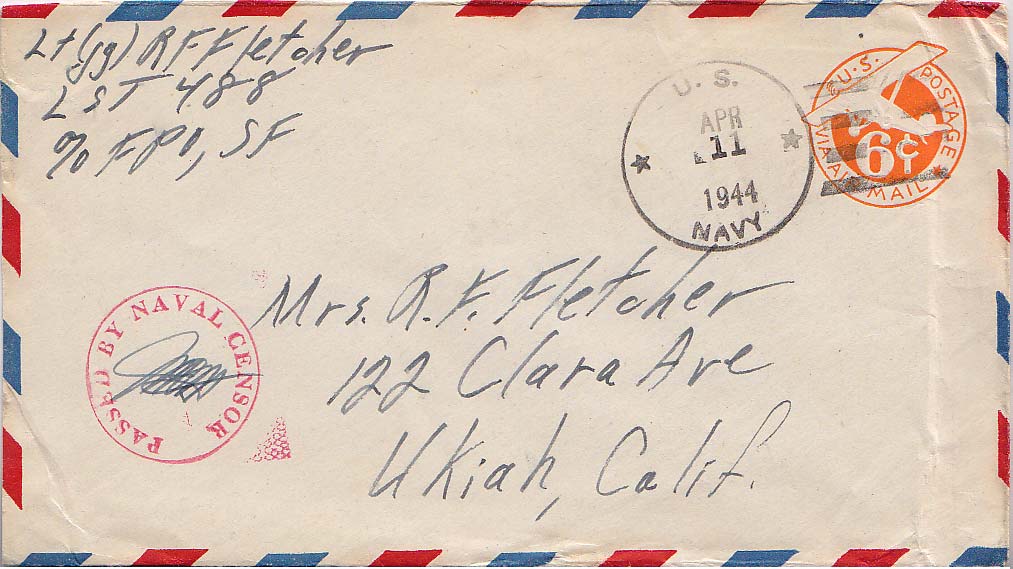 Lt(jg) R F Fletcher
LST 488
℅ FPO, SF
U. S.
APR
11
1944
NAVY
U.S. POSTAGE
6¢
VIA AIR MAIL
PASSED BY NAVAL CENSOR
Mrs. R. F. Fletcher
122 Clara Ave
Ukiah, Calif.